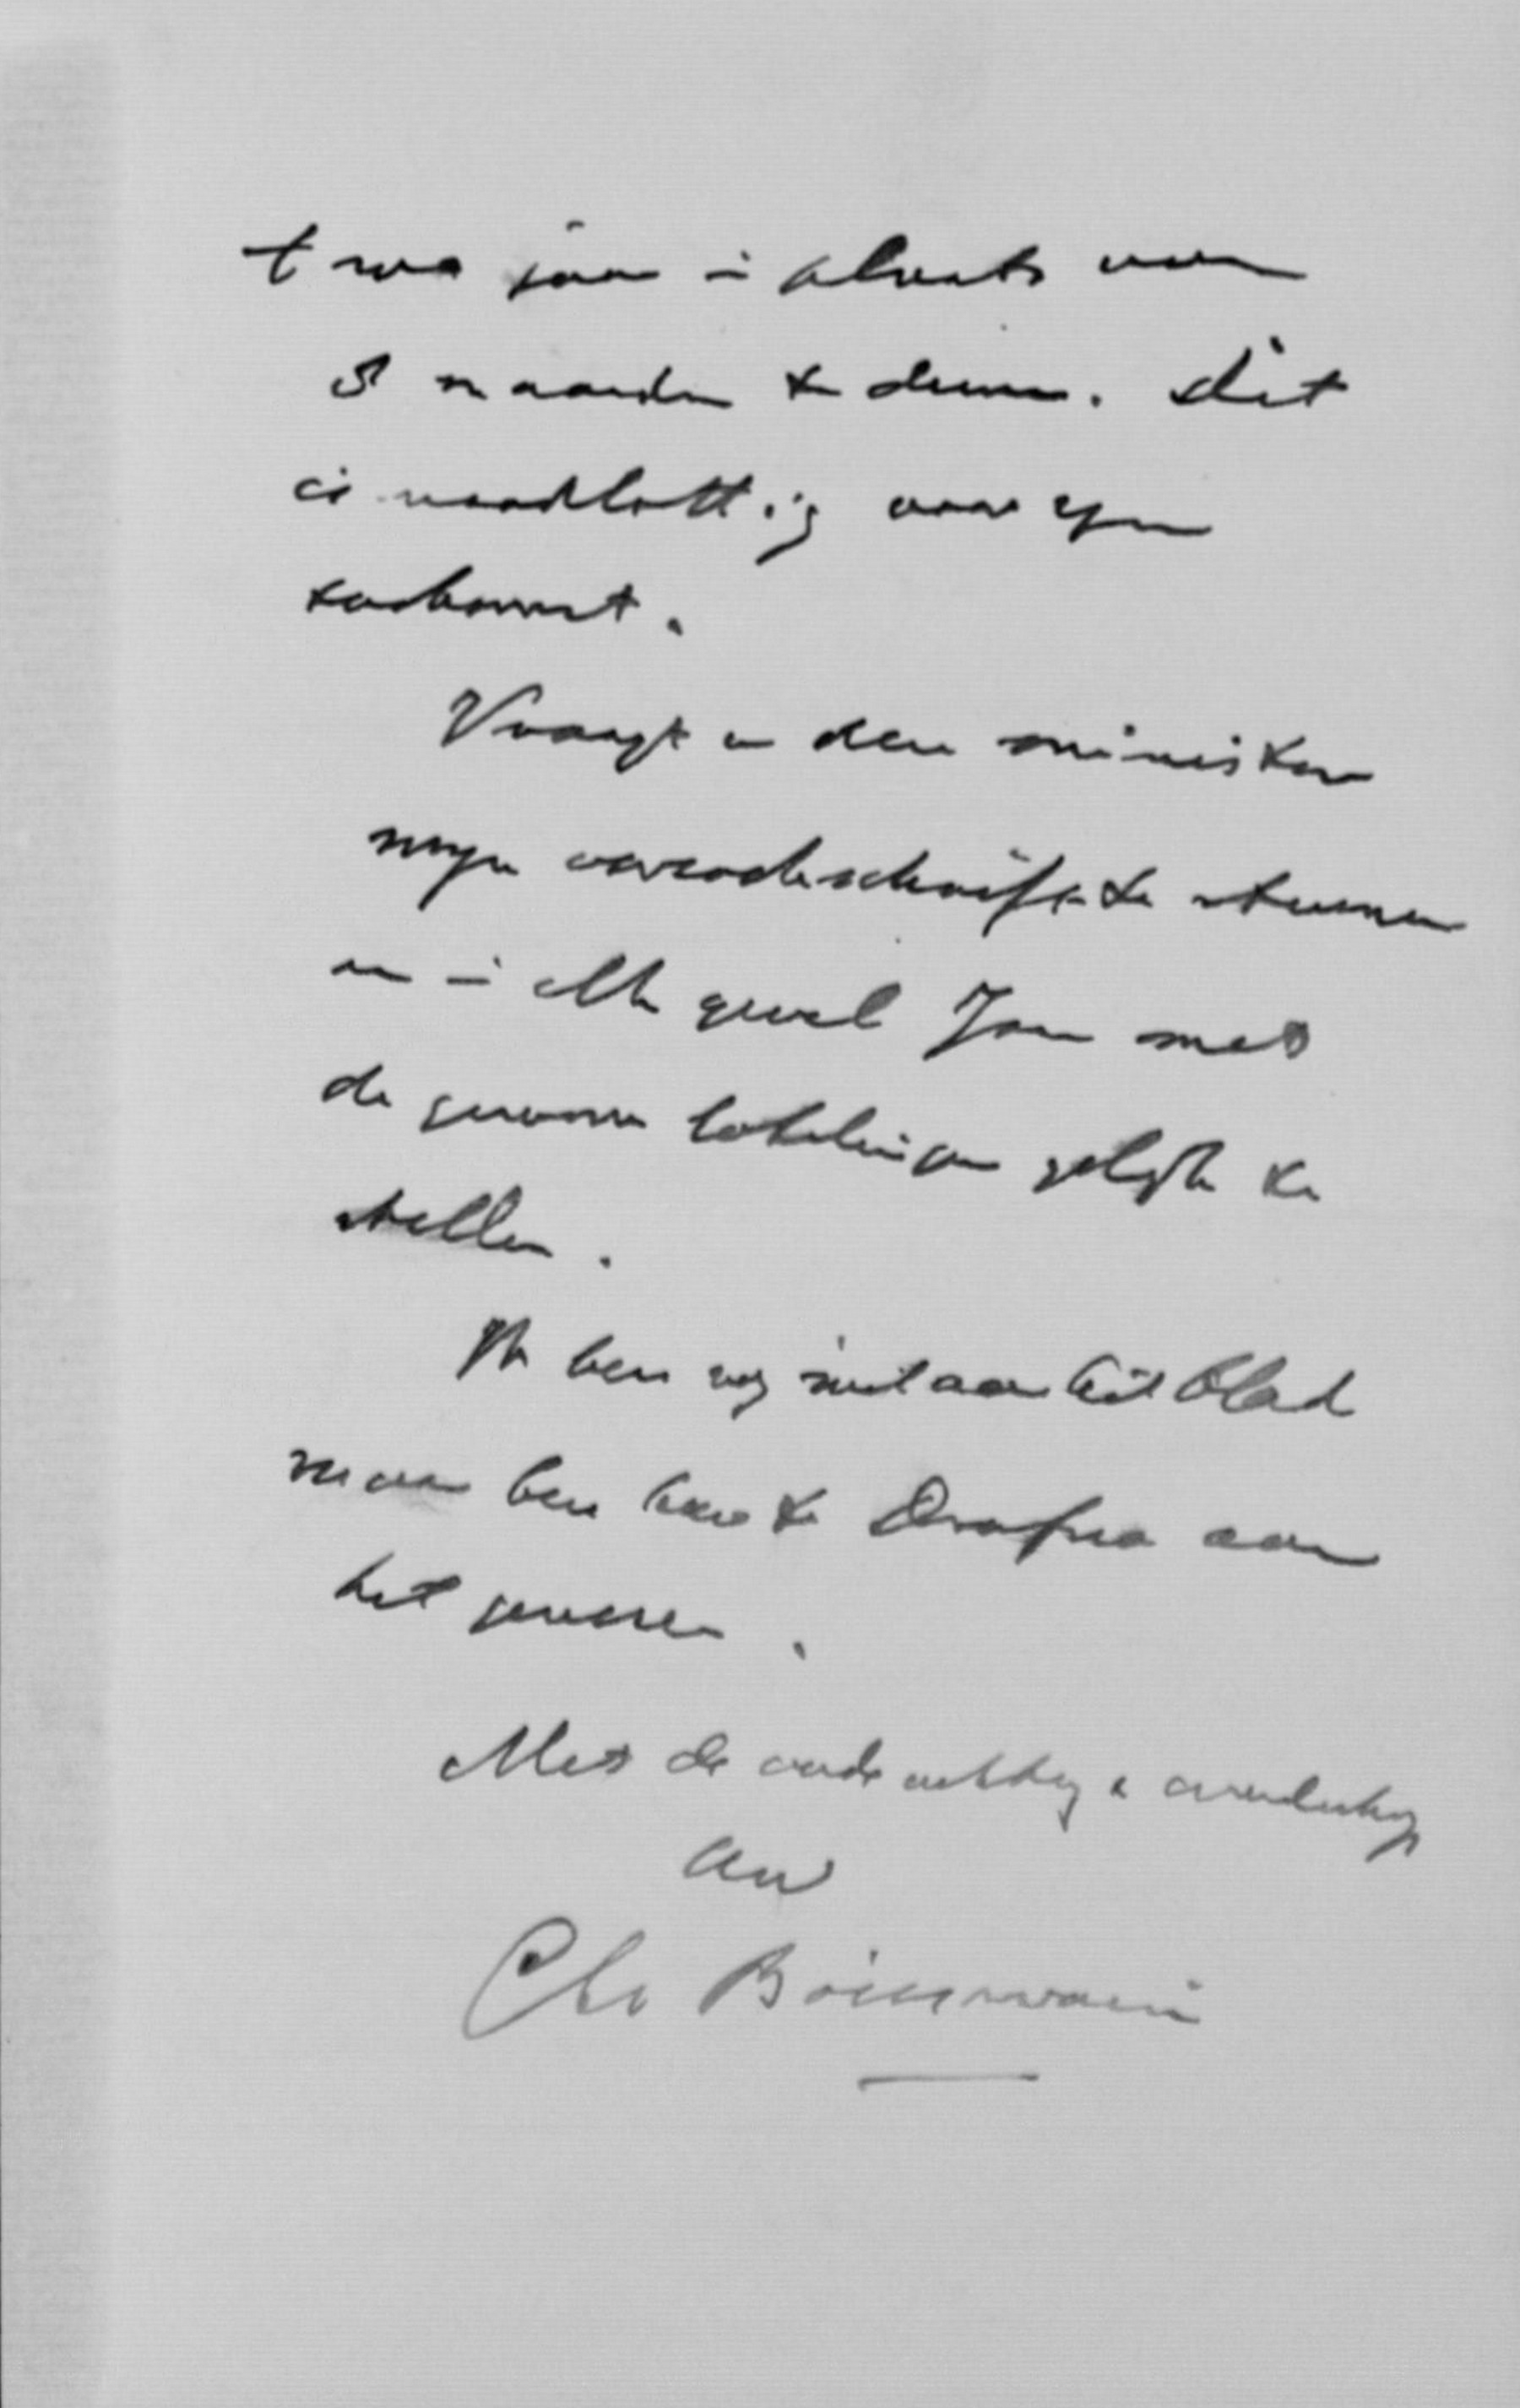 twee jaar in plaats van
8 maanden te dienen. Dit
is noodlottig voor zijn
toekomst.
Vraagt u den minister
mijn verzoekschrift te steunen
en in elk geval Jan met
de gewone lotelingen gelijk te
stellen.
Ik ben nog niet aan het blad
maar ben hier te Drafna aan
het genezen.
Met de oude achting & vriendschap
Uw
Ch Boissevain